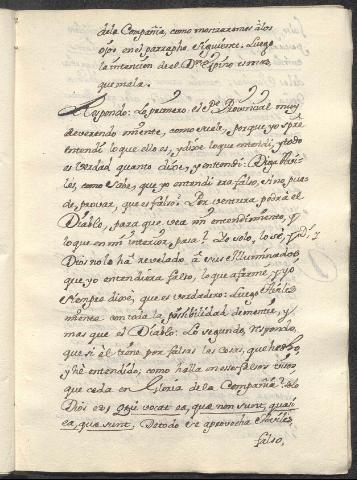 dela Compañia, como monstraremos à los
ojos en el parrapho siguiente. Luego
la intencion de el Dr. Espino es mas
que mala.
Respondo: Lo primero: el Pe. Provincial muy
Reverendo miente, como suele, porque yo sipre
entendi lo que ello es, y dixe lo que entendi, y todo
es verdad quanto dixe, y entendi: Diga Achi-
les, como sabe, que yo entendi era falso, si no pue-
de, provar, que es falso? Por ventura podrà el
Diablo, para que vea mi entendimiento, y
lo que en mi interior, passa? Yo solo, lo sè, y Dios,
Dios no lo hà revelado à sus Illuminados
que yo entendiera falso, lo que afirmè, y yo
siempre dixe, que es verdadero: Luego Achiles
miente con toda la possibilidad de mentir, y
mas que el Diablo: Lo segundo, respondo,
que si èl tiene por falsas las cosas, que he dho,
y hè entendido; como halla en esso falso razon
que ceda en Gloria de la Compañia? Solo
Dios es; Qui vocat ea, quæ non sunt, quasi
ea, quæ sunt, De todo se aprovecha Achiles,
falso,